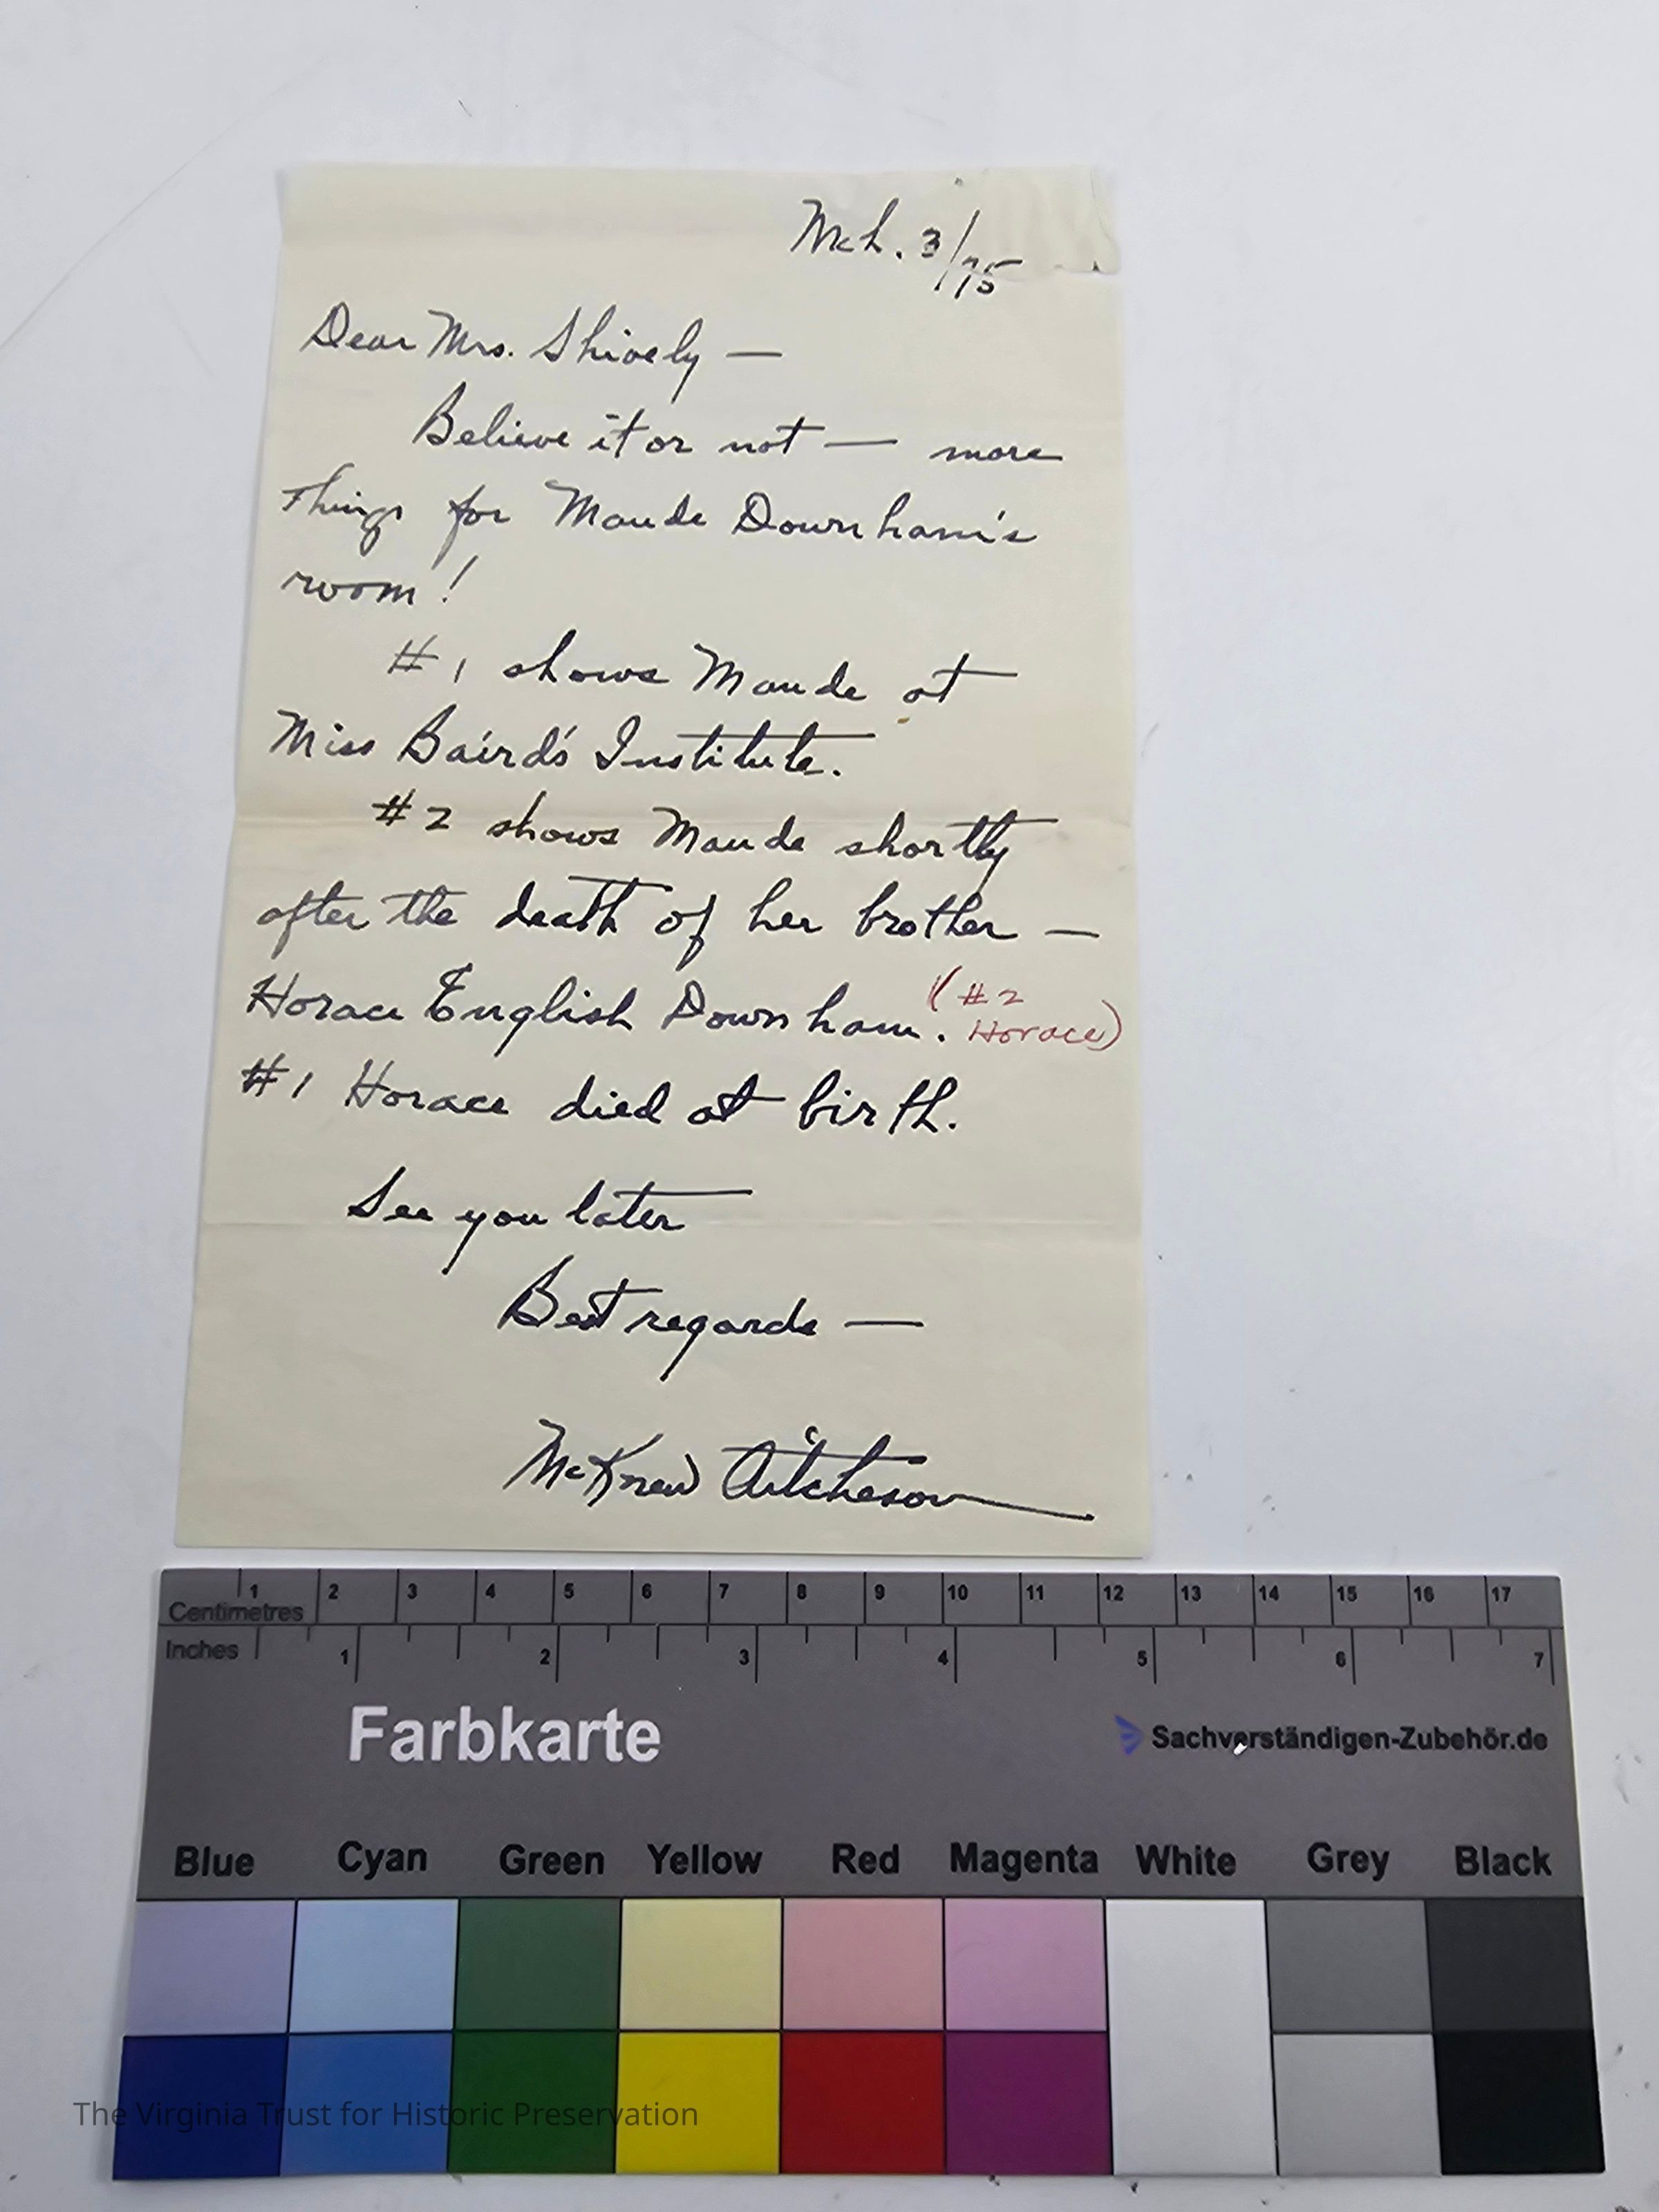 Mch. 3/75
Dear Mrs. Shively —
Believe it or not — more
things for Maude Downham's
room!
#1 shows Maude at
Miss Baird's Institute.
#2 shows Maude shortly
after the death of her brother —
Horace English Downham. (#2
Horace)
#1 Horace died at birth.
See you later
Best regards —
McKnew Aitcheson
1 2 3 4 5 6 7 8 9 10 11 12 13 14 15 16 17
Centimetres
Inches 1 2 3 4 5 6 7
Farbkarte
Sachverständigen-Zubehör.de
Blue Cyan Green Yellow Red Magenta White Grey Black
The Virginia Trust for Historic Preservation